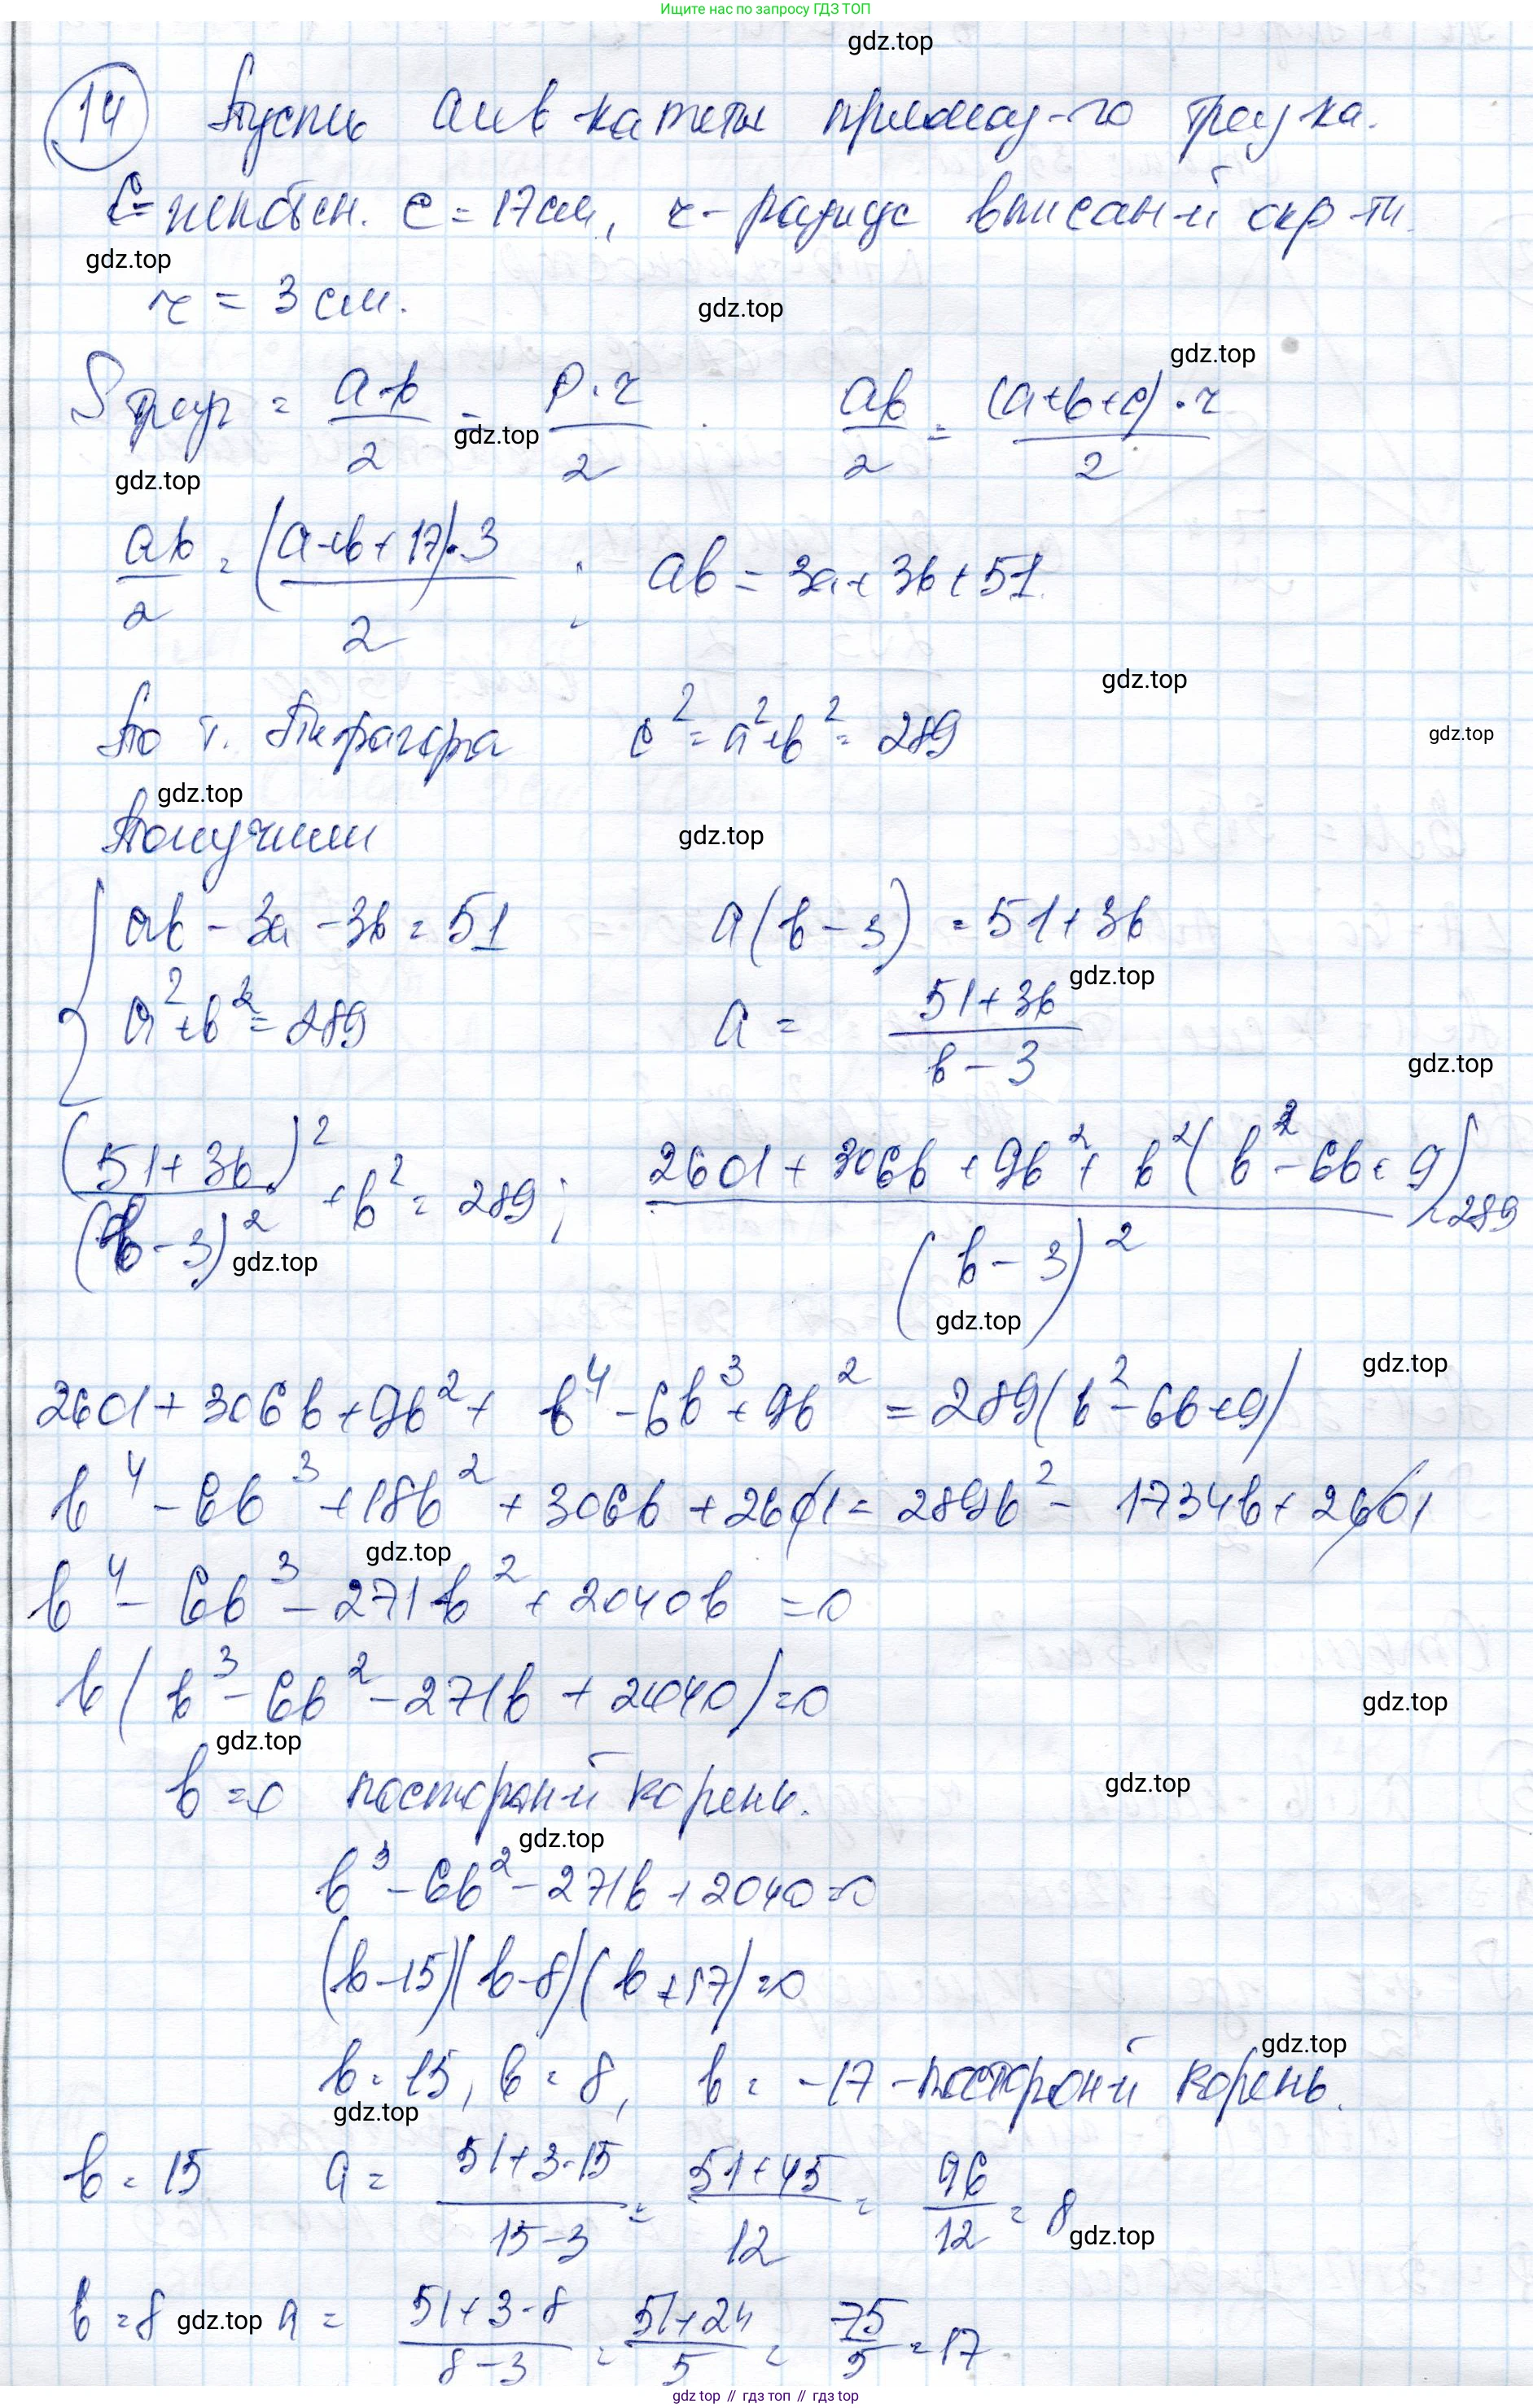 Ищите нас по запросу ГДЗ ТОП
gdz.top
14 Пусть a и b катеты прямоуг-го треу-ка.
C = гипотен. c = 17 см, r - радиус вписан-й окр-ти.
gdz.top
r = 3 см.
gdz.top
gdz.top
S треуг = a·b/2 = P·r/2 . ab/2 = (a+b+c)·r/2
gdz.top
gdz.top
ab/2 = (a+b+17)·3/2 ; ab = 3a+3b+51
gdz.top
По т. Пифагора c² = a²+b² = 289
gdz.top
gdz.top
Получим
gdz.top
ab - 3a - 3b = 51 a(b-3) = 51+3b
gdz.top
a²+b² = 289 a = 51+3b/b-3
gdz.top
(51+3b)²/(b-3)² + b² = 289; 2601+306b+9b²+b²(b²-6b+9)/(b-3)² = 289
gdz.top
gdz.top
gdz.top
2601+306b+9b²+b⁴-6b³+9b² = 289(b²-6b+9)
b⁴-6b³+18b²+306b+2601 = 289b²-1734b+2601
gdz.top
b⁴-6b³-271b²+2040b = 0
b(b³-6b²-271b+2040) = 0
gdz.top
gdz.top
b = 0 посторон-й корень.
gdz.top
gdz.top
b³-6b²-271b+2040=0
(b-15)(b-8)(b+17)=0
gdz.top
b = 15, b = 8, b = -17 - посторон-й корень.
gdz.top
b = 15 a = 51+3·15/15-3 = 51+45/12 = 96/12 = 8
gdz.top
b = 8 gdz.top a = 51+3·8/8-3 = 51+24/5 = 75/5 = 17
gdz top // гдз топ // gdz top